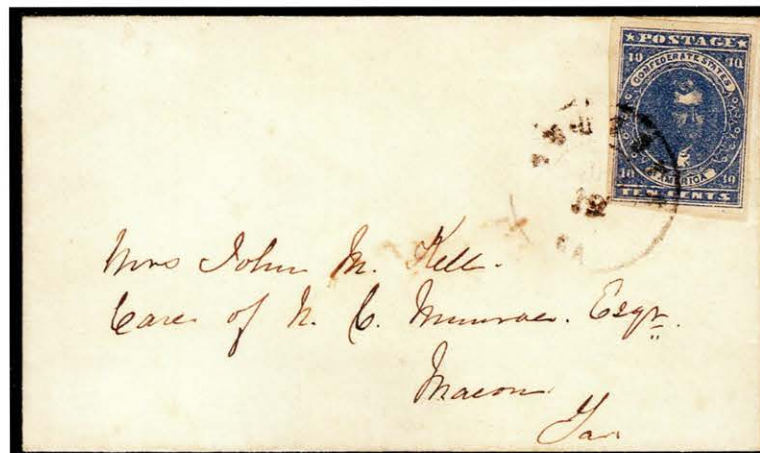 ★POSTAGE★
10 10
CONFEDERATE STATES
AMERICA
10 10
TEN CENTS
GA
Mrs John M. Kell.
Care of N. C. Munroe. Esqr.
Macon
Ga